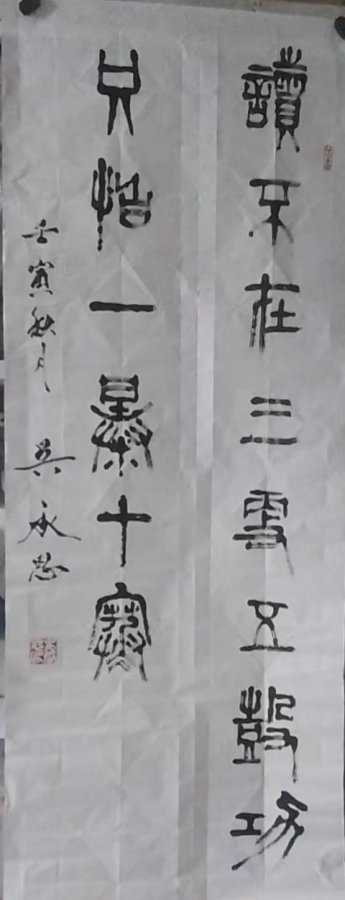 讀不在三更五鼓功
只怕一暴十寒
壬寅秋月 吴永